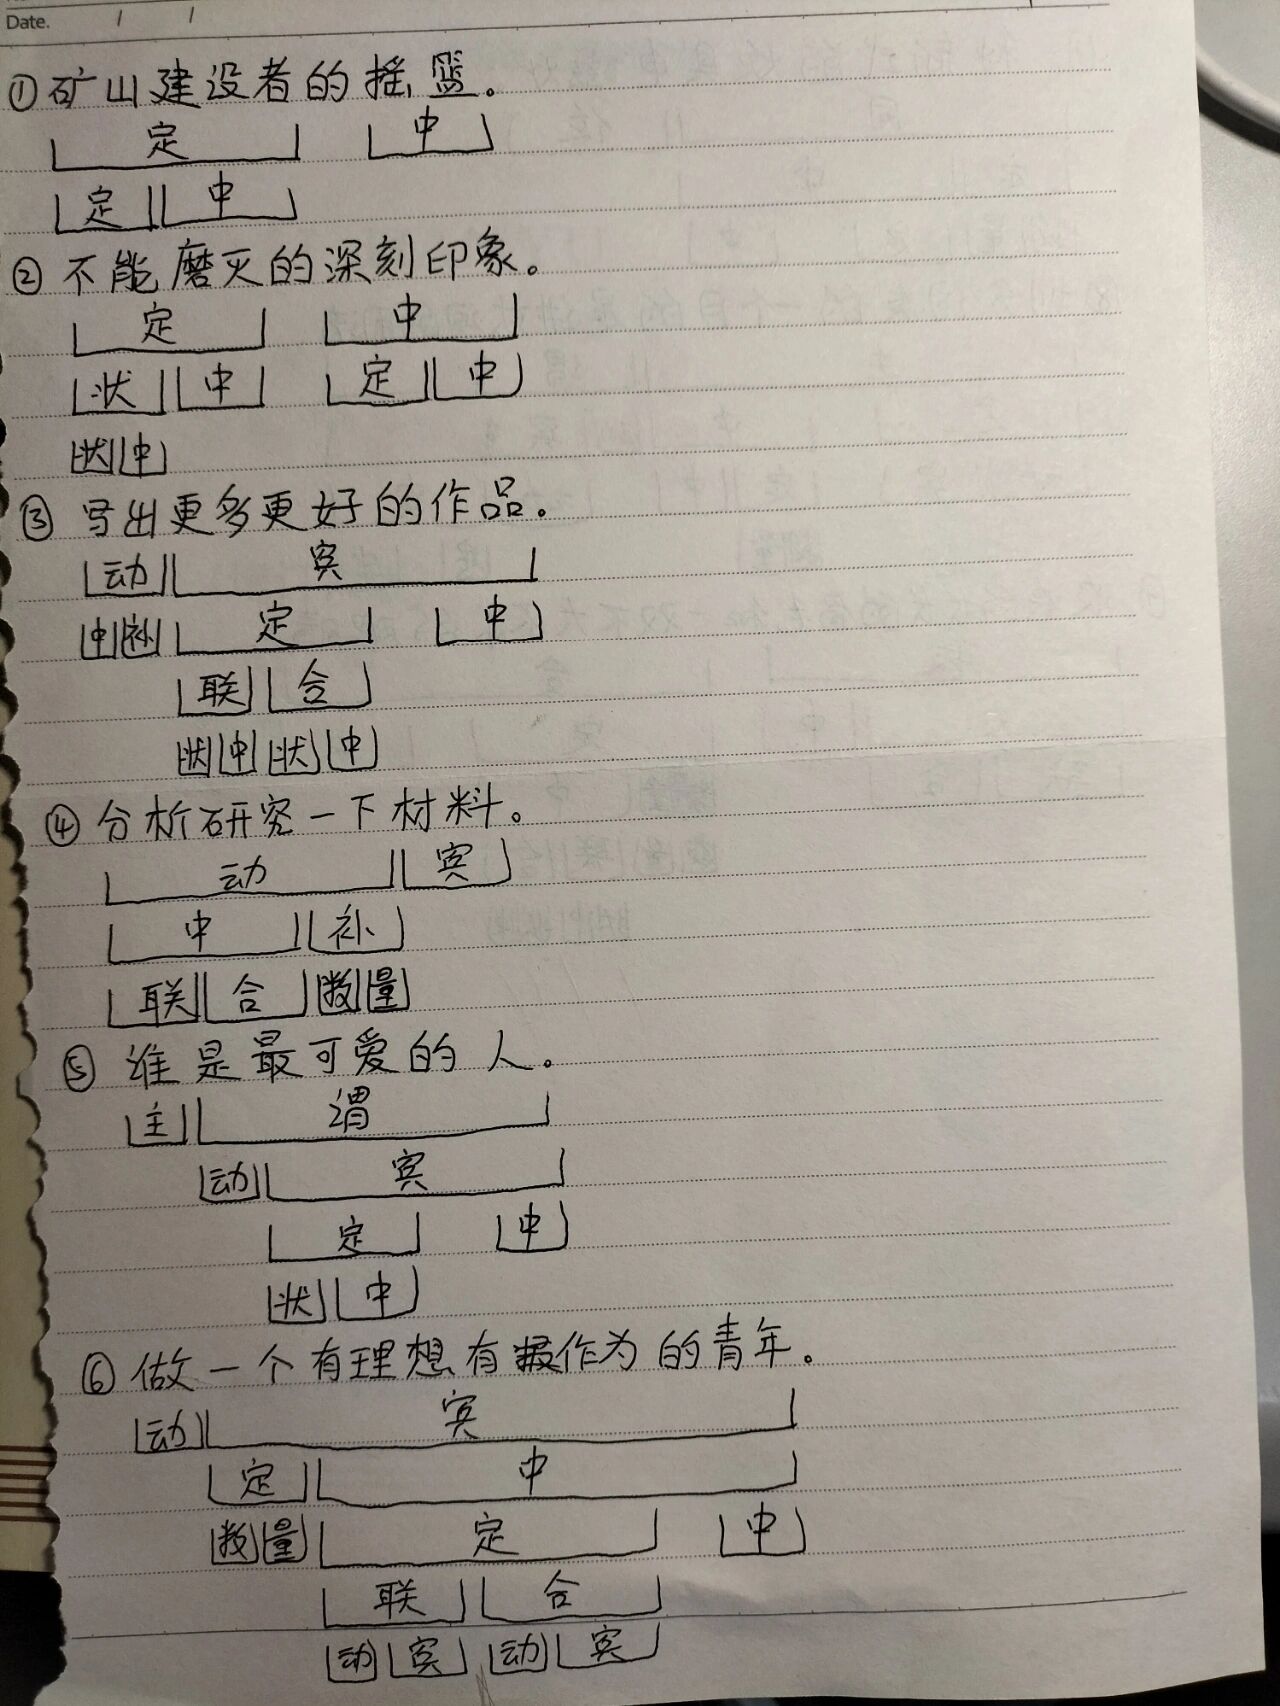 Date. / /
①矿山建设者的摇篮。
定 中
定 中
②不能磨灭的深刻印象。
定 中
状 中 定 中
状 中
③写出更多更好的作品。
动 宾
中 补 定 中
联 合
状 中 状 中
④分析研究一下材料。
动 宾
中 补
联 合 数 量
⑤谁是最可爱的人。
主 谓
动 宾
定 中
状 中
⑥做一个有理想有作为的青年。
动 宾
定 中
数 量 定 中
联 合
动 宾 动 宾